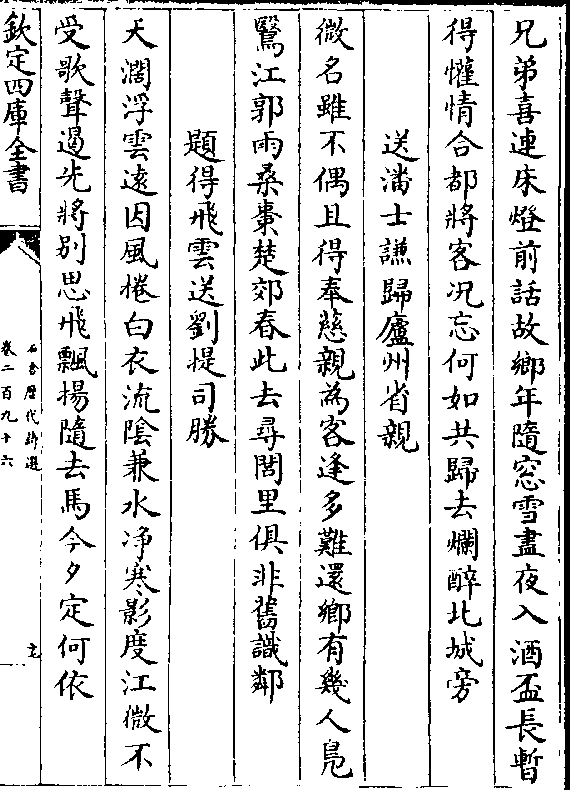 兄弟喜連床燈前話故鄉年隨窓雪盡夜入酒盃長暫
得懽情合都將客况忘何如共歸去爛醉北城旁
送潘士謙歸廬州省親
微名雖不偶且得奉慈親為客逢多難還鄉有幾人鳬
鷖江郭雨桑棗楚郊春此去尋閭里俱非舊識鄰
題得飛雲送劉提司勝
天濶浮雲遠因風捲白衣流陰兼水净寒影度江微不
受歌聲遏先將别思飛飄揚隨去馬今夕定何依
欽定四庫全書
石倉歴代詩選
卷二百九十六